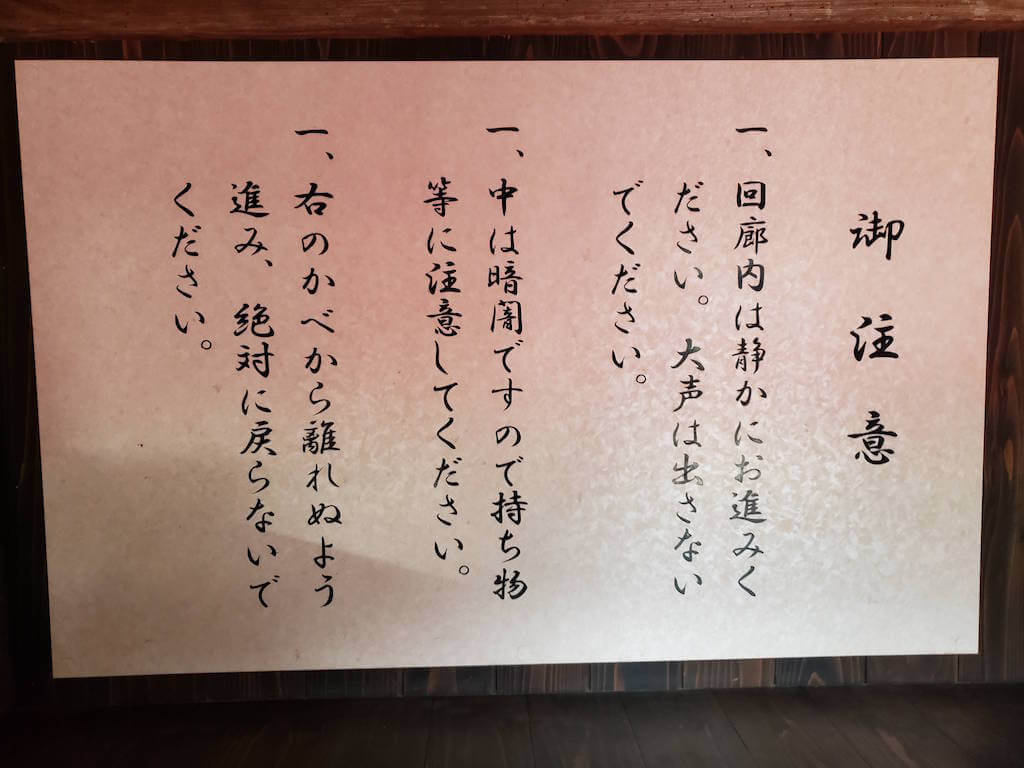 御注意
一、回廊内は静かにお進みく
ださい。大声は出さない
でください。
一、中は暗闇ですので持ち物
等に注意してください。
一、右のかべから離れぬよう
進み、絶対に戻らないで
ください。